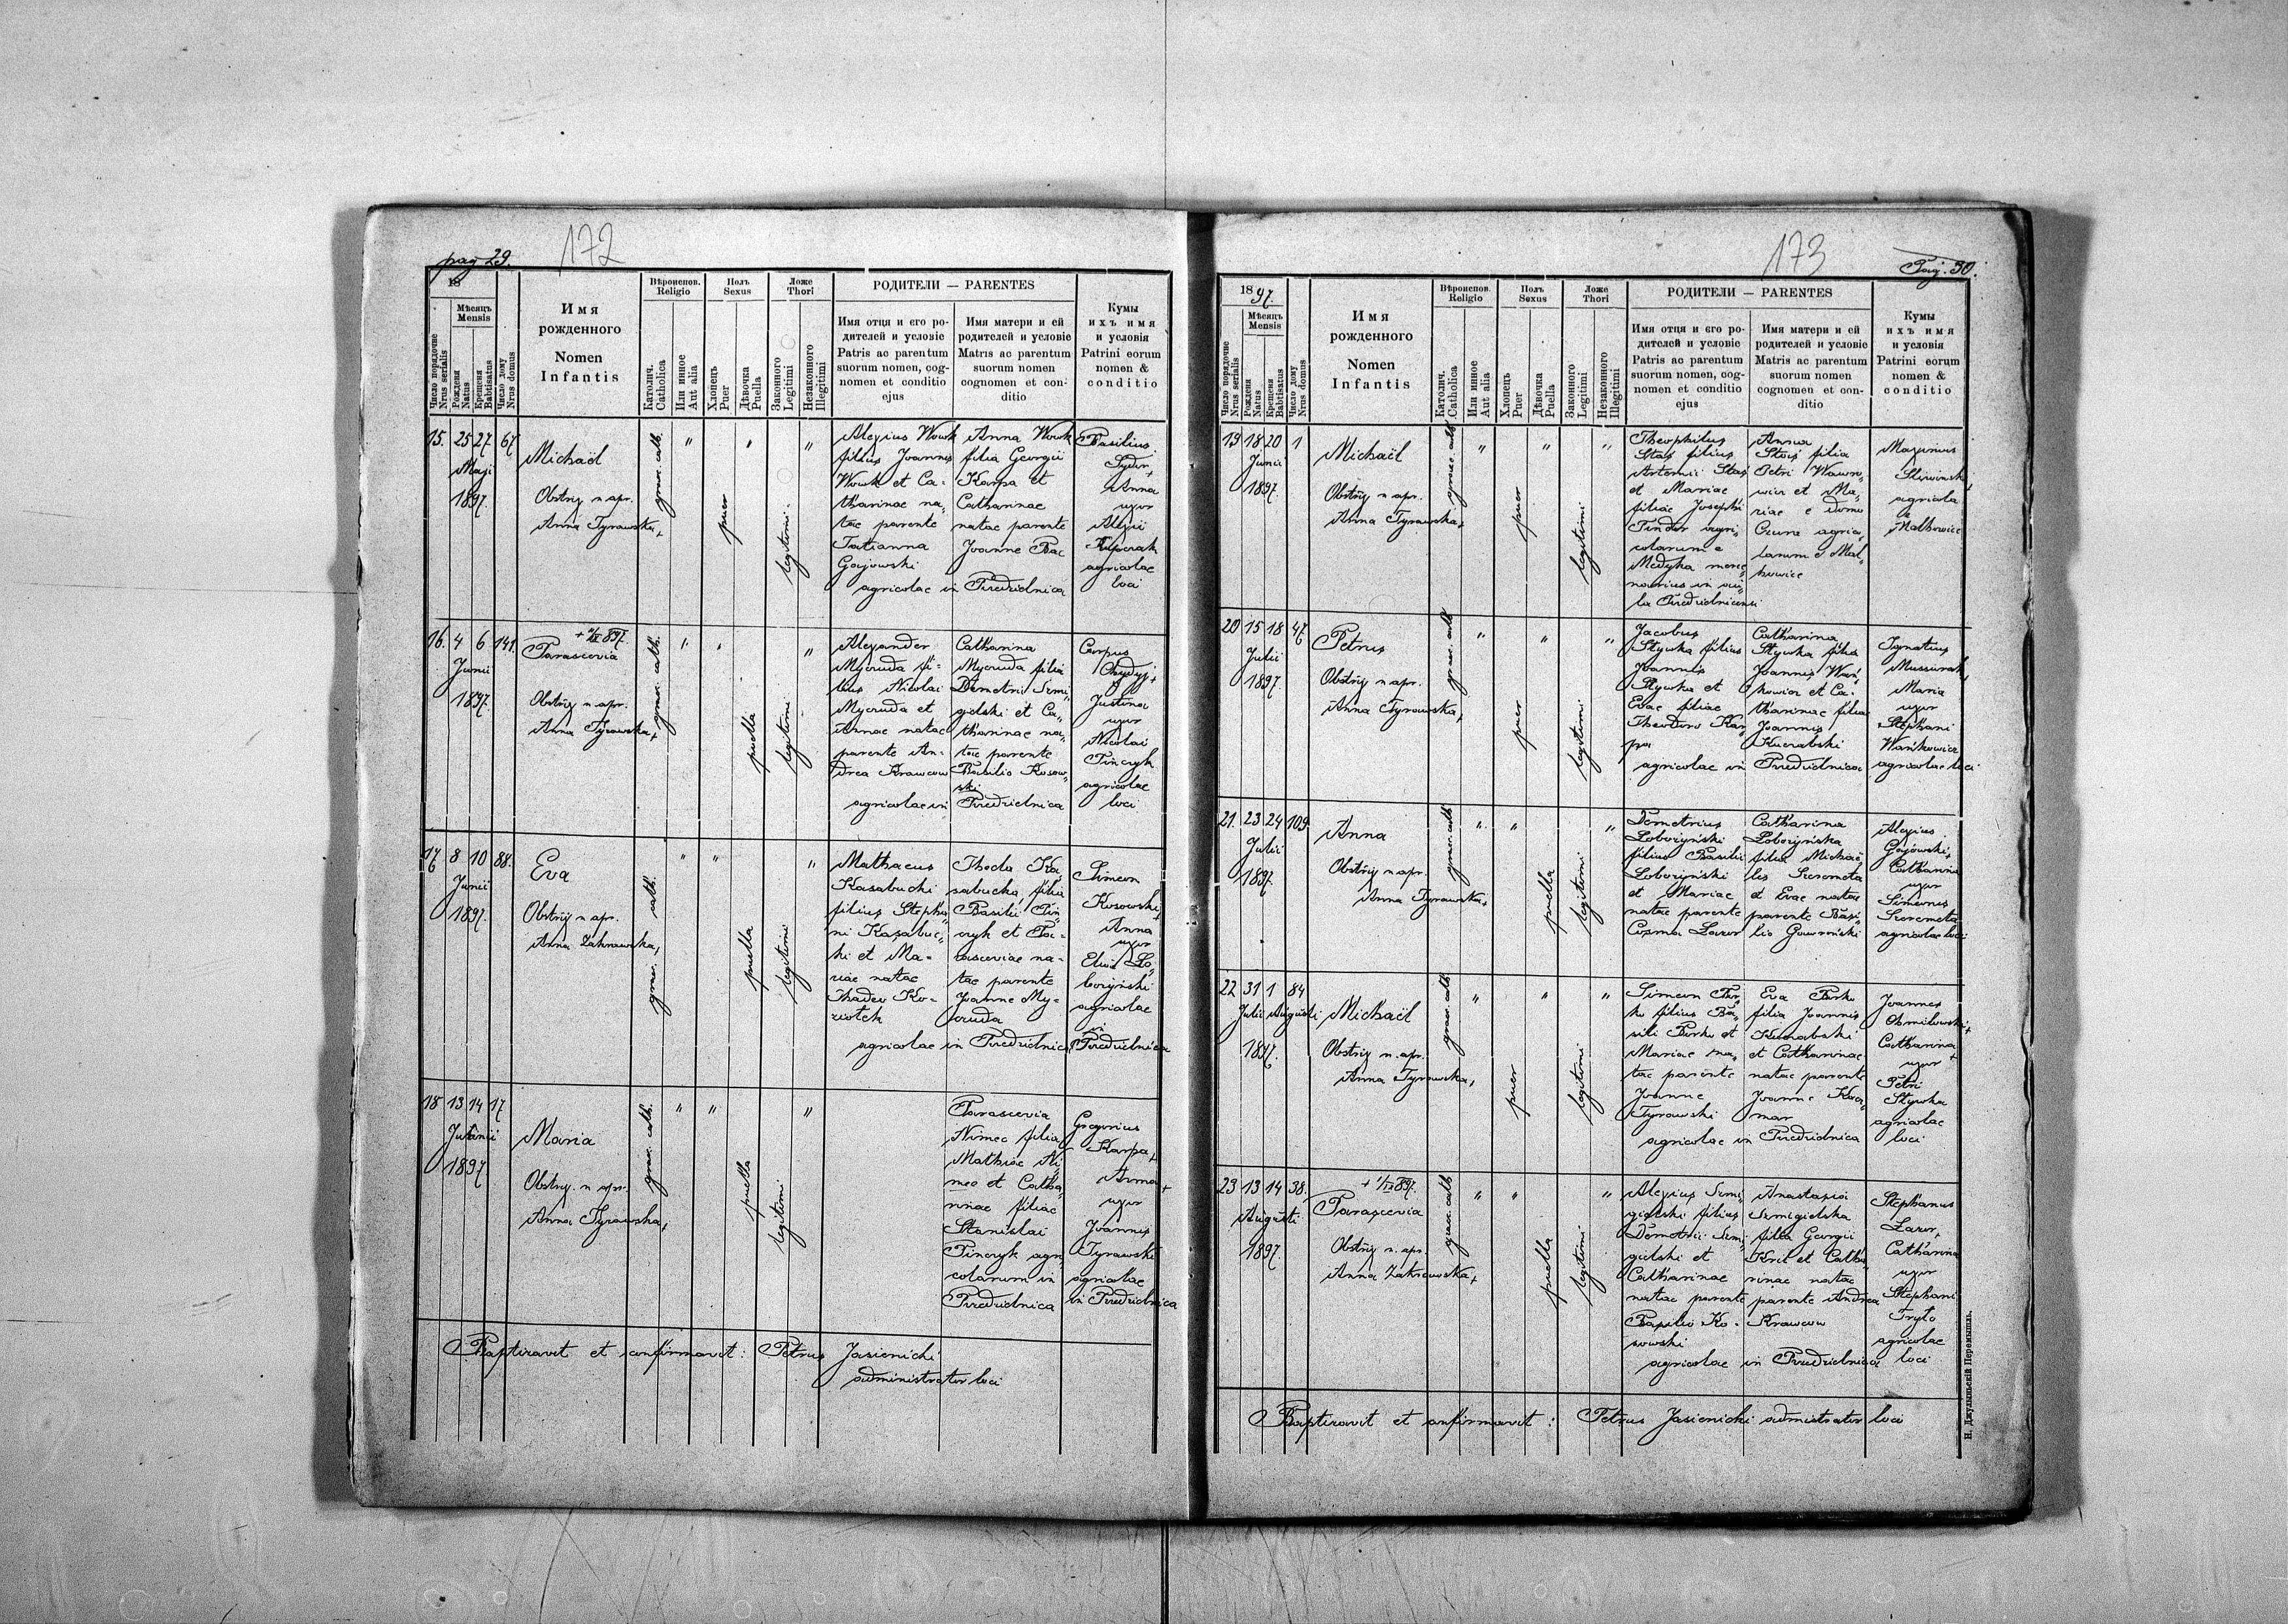 172
pag 29.
18
Мѣсяць
Mensis
Число порядочне
Nrus serialis
Рожденя
Natus
Крещеня
Babtisatus
Число дому
Nrus domus
Имя
рожденного
Nomen
Infantis
Вѣроиспов.
Religio
Католич.
Catholica
Или инное
Aut alia
Полъ
Sexus
Хлопець
Puer
Дѣвочка
Puella
Ложе
Thori
Законного
Legitimi
Незаконного
Illegitimi
РОДИТЕЛИ — PARENTES
Имя отця и его ро-
дителей и условіе
Patris ac parentum
suorum nomen, cog-
nomen et conditio
ejus
Имя матери и ей
родителей и условіе
Matris ac parentum
suorum nomen
cognomen et con-
ditio
Кумы
ихъ имя
и условія
Patrini eorum
nomen &
conditio
15. 25 27 67
Maji
1897.
Michaël
Obstrix n apr.
Anna Tyrawska +
graec. cath.
puer
legitimi.
Alexius Wowk
filius Joannis
Wowk et Ca-
tharinae na-
tae parente
Tatianna
Gajowski
Anna Wowk
filia Georgii
Karpa et
Catharinae
natae parente
Joanne Bac
agricolae in Piredzielnica
Basilius
Sydor +
Anna
uxor
Alexii
agricolae
loci
16. 4 6 141.
Junii
1897.
Parascevia
Obstrix n apr.
Anna Tyrawska +
graec. cath.
puella
legitimi
Alexander
Mycuda fi-
lius Nicolai
Mycuda et
Annae natae
parente An-
drea Krawcow
Catharina
Mycuda filia
Demetrii Semi-
gielski et Ca-
tharinae na-
tae parente
Basilio Kosow-
ski
agricolae in Piredzielnica
Carpus
Justina
uxor
Nicolai
Pinczyk
agricolae
loci
17 8 10 88.
Junii
1897.
Eva
Obstrix n apr.
Anna Zakrawska,
graec. cath.
puella
legitimi
Mathaeus
Kasabucki
filius Stepha-
ni Kasabuc-
ki et Ma-
riae natae
Thadeo Ko-
ziolek
Thecla Ka-
sabucka, filia
Basilii Pin-
czyk et Pa-
rasceviae na-
tae parente
Joanne My-
cuda
agricolae in Piredzielnica
Simeon
Kosowski +
Anna
uxor
Eliae Lo-
bozynski
agricolae
in
Piredzielnica
18 13 14 17
Junii
1897
Maria
Obstrix. n apr.
Anna Tyrawska +
graec. cath.
puella
legitimi
Parascevia
Nimec filia
Mathiae Ni-
mec et Catha-
rinae filiae
Stanislai
Pinczyk agri-
colarum in
Piredzielnica
Gregorius
Karpa +
Anna +
uxor
Joannis
Tyrawski
agricolae
in Piredzielnica
Baptizavit et confirmavit: Petrus Jasienicki
administrator loci
173
Pag. 30.
1897.
Мѣсяць
Mensis
Число порядочне
Nrus serialis
Рожденя
Natus
Крещеня
Babtisatus
Число дому
Nrus domus
Имя
рожденного
Nomen
Infantis
Вѣроиспов.
Religio
Католич.
Catholica
Или инное
Aut alia
Полъ
Sexus
Хлопець
Puer
Дѣвочка
Puella
Ложе
Thori
Законного
Legitimi
Незаконного
Illegitimi
РОДИТЕЛИ — PARENTES
Имя отця и его ро-
дителей и условіе
Patris ac parentum
suorum nomen, cog-
nomen et conditio
ejus
Имя матери и ей
родителей и условіе
Matris ac parentum
suorum nomen
cognomen et con-
ditio
Кумы
ихъ имя
и условія
Patrini eorum
nomen &
conditio
19 18 20 1
Junii
1897.
Michaël
Obstrix n apr.
Anna Tyrawska +
graec. cath.
puer
legitimi
Theophilus
Stas filius
Artemii Stas
et Mariae
filiae Josephi
Pindor agri-
colarum e
Medyka merce-
narius in vil-
la Piredzielnicensi
Anna
Stas filia
Petri Wawro-
wicz et Ma-
riae e domo
Czura agrico-
larum e Mal-
kowice
Maximus
Sliwinski
agricola
e
Malkowice
20 15 18 47
Julii
1897.
Petrus
Obstrix n apr.
Anna Tyrawska +
graec. cath
puer
legitimi
Jacobus
Slywka filius
Joannis
Slywka et
Evae filiae
Theodoro Kar-
pa
Catharina
Slywka filia
Joannis Wań-
kowicz et Ca-
tharinae filiae
Joannis
Kucrabski
agricolae in Piredzielnica
Ignatius
Maria
uxor
Stephani
Wańkowicz
agricolae loci
21. 23 24 109.
Julii
1897.
Anna
Obstrix n apr.
Anna Tyrawska +
graec. cath
puella
legitimi
Demetrius
Loboźyński
filius Basilii
Loboźyński
et Mariae
natae parente
Cosma Lazor
Catharina
Loboźyńska
filia Michaë-
lis Szeremeta
et Evae natae
parente Basi-
lio Gawroński
Alexius
Gajowski +
Catharina
uxor
Simeonis
Szeremeta
agricolae loci
22 31 1 84
Julii Augusti
1897.
Michaël
Obstrix n. apr.
Anna Tyrawska,
graec. cath
puer
legitimi
Simeon Bur-
ko filius Ba-
silii Burko et
Mariae na-
tae parente
Joanne
Tyrawski
Eva Burko
filia Joannis
Kucrabski
et Catharinae
natae parente
Joanne Kacz-
mar
agricolae in Piredzielnica
Joannes
Obmilowski +
Catharina +
uxor
Petri
Slywka
agricolae
loci
23 13 14 38.
Augusti
1897.
Parascevia
Obstrix n. apr.
Anna Zakrawska +
graec. cath
puella
legitimi
Alexius Semi-
gielski filius
Demetrii Semi-
gielski et
Catharinae
natae parente
Basilio Ko-
sowski
Anastasia
Semigielska
filia Georgii
Kril et Catha-
rinae natae
parente Andrea
Krawcow
agricolae in Piredzielnica
Stephanus
Lazor +
Catharina
uxor
Stephani
agricolae
loci
Baptizavit et confirmavit: Petrus Jasienicki administrator loci
Н. Джулыньскій Перемышль.